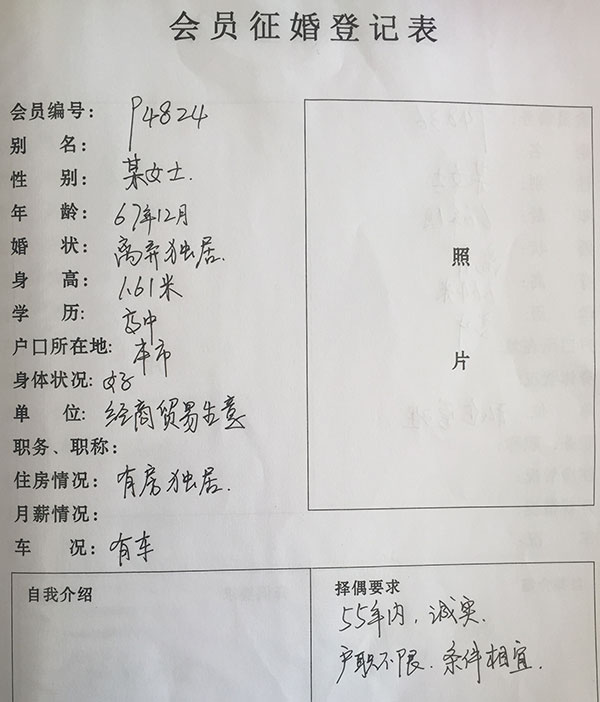 会员征婚登记表
会员编号: P4824
别 名:
性 别: 某女士.
年 龄: 67年12月
婚 状: 离异独居.
身 高: 1.61米
学 历: 高中
户口所在地: 本市
身体状况: 好
单 位: 经商贸易生意
职务、职称:
住房情况: 有房独居.
月薪情况:
车 况: 有车
照
片
自我介绍
择偶要求
55年内, 诚实.
户职不限. 条件相宜.